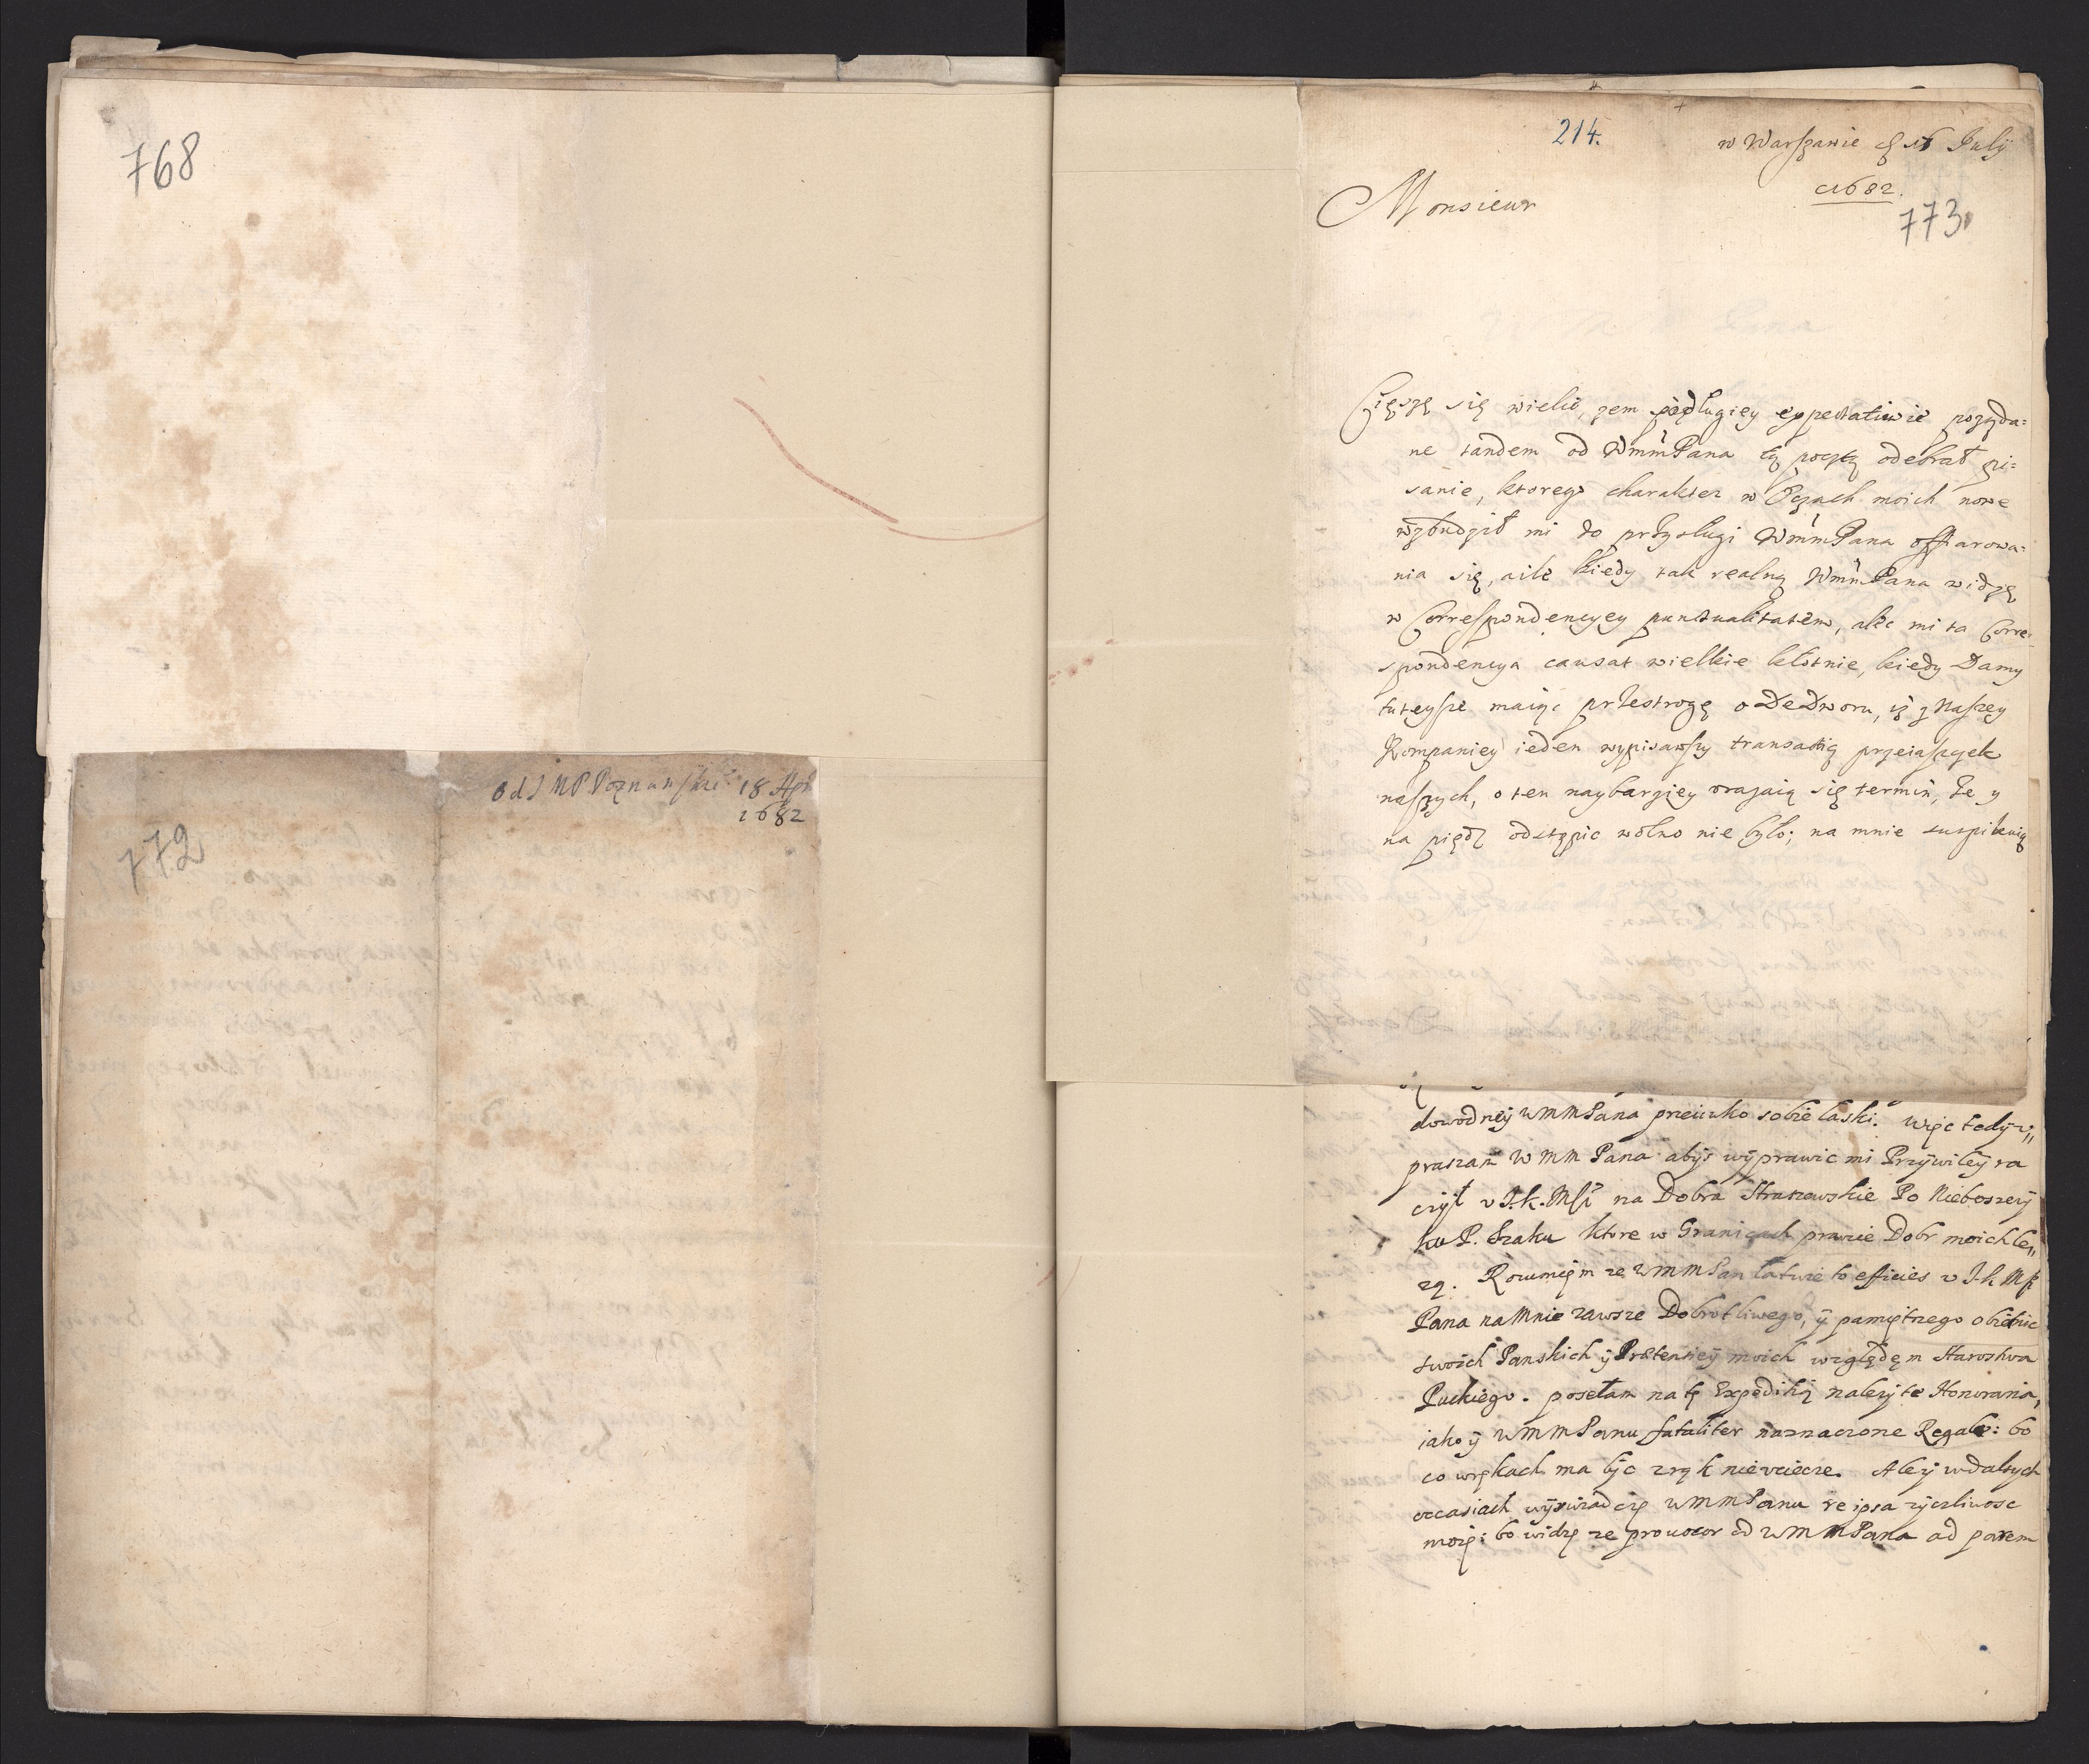 768
od J M P Poznanskie 18 Apr
1682
772
214.
w Warszawie d 16 July
1682.
773
Monsieur
Cięszę się wielie, zem po długiey expectatiwie pozyda=
ne tandem od WmmPana tą pocztą odebrał pi=
sanie, ktorego charakter w Oczach moich nowe
wzbudził mi do przysługi WmmPana offiarowa=
nia się, aile kiedy tak realną WmmPana widzę
w Correspondencyey punctualitatem, ale mi ta Corre=
spondencya causat wielkie kłotnie, kiedy Damy
tuteysze maiąc przestrogę ode Dworu, iż z Naszey
Kompaniey ieden wypisawszy transactią przeiasczek
naszych, o ten naybarziey vrazaią się termin, że y
na piędz odstąpic wolno nie było; na mnie suspikuią
dowodney WMMPana przeciwko sobie łaski. Więc tedy v,,
praszam WMM Pana abys wyprawic mi Przywiley ra
czył v J.K.Mści na Dobra Straszewskie Po Nieboszczy
ku P. Szaku ktore w Granicach prawie Dobr moich le,,
zą. Rozumięm ze WMMPan łatwie to efficies v J.K.Mści
Pana na Mnie zawsze Dobrotliwego, y pamiętnego obietnic
swoich Panskich y Prętensiey moich względęm Starostwa
Puckiego. posełam na tę Expeditią nalezyte Honoraria,
iako y WMMPanu fataliter naznaczone Regale: bo
co w rękach ma byc z rąk nie vciecze. Ale y w dalszych
occasiach wyswiadczę WMMPanu re ipsa zyczliwosc
moię: bo widzę ze prouocor od WMMPana ad parem